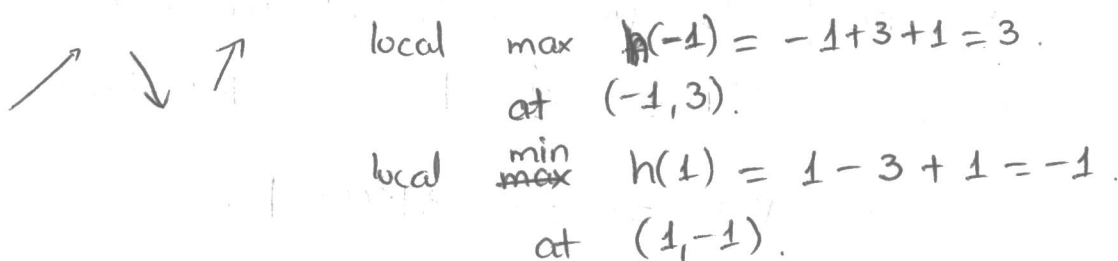 local max h(-1) = -1+3+1 = 3.
at (-1, 3).
local min max h(1) = 1 - 3 + 1 = -1.
at (1, -1).